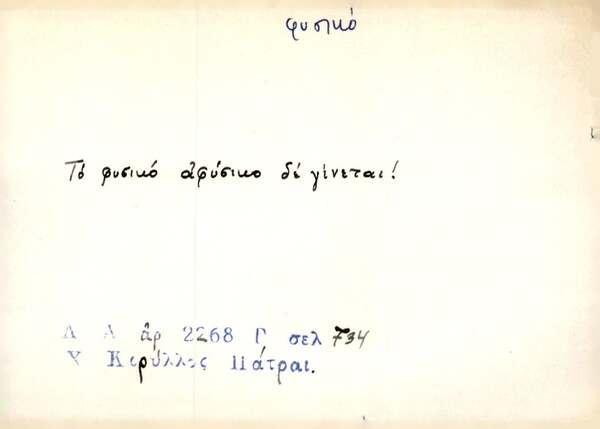 φυσικό
Τό φυσικό ἀφύσικο δέ γίνεται!
Λ Α ἀρ 2268 Γ σελ 734
Χ Κορύλλος Πάτραι.